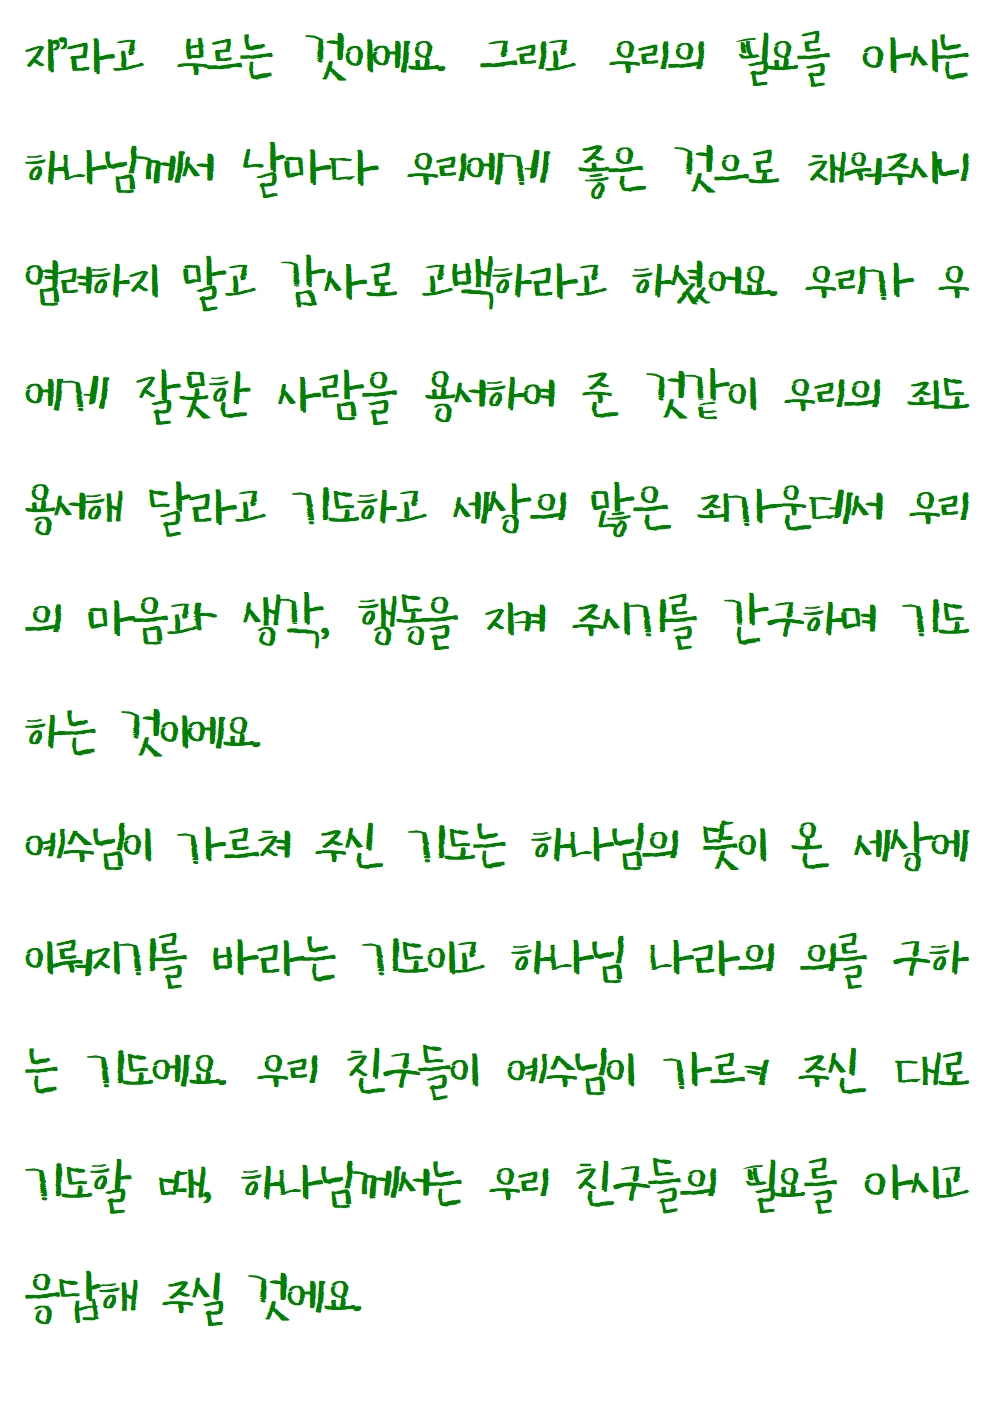 자”라고 부르는 것이에요. 그리고 우리의 필요를 아시는
하나님께서 날마다 우리에게 좋은 것으로 채워주시니
염려하지 말고 감사로 고백하라고 하셨어요. 우리가 우
에게 잘못한 사람을 용서하여 준 것같이 우리의 죄도
용서해 달라고 기도하고 세상의 많은 죄가운데서 우리
의 마음과 생각, 행동을 지켜 주시기를 간구하며 기도
하는 것이에요.
예수님이 가르쳐 주신 기도는 하나님의 뜻이 온 세상에
이뤄지기를 바라는 기도이고 하나님 나라의 의를 구하
는 기도에요. 우리 친구들이 예수님이 가르켜 주신 대로
기도할 때, 하나님께서는 우리 친구들의 필요를 아시고
응답해 주실 것에요.